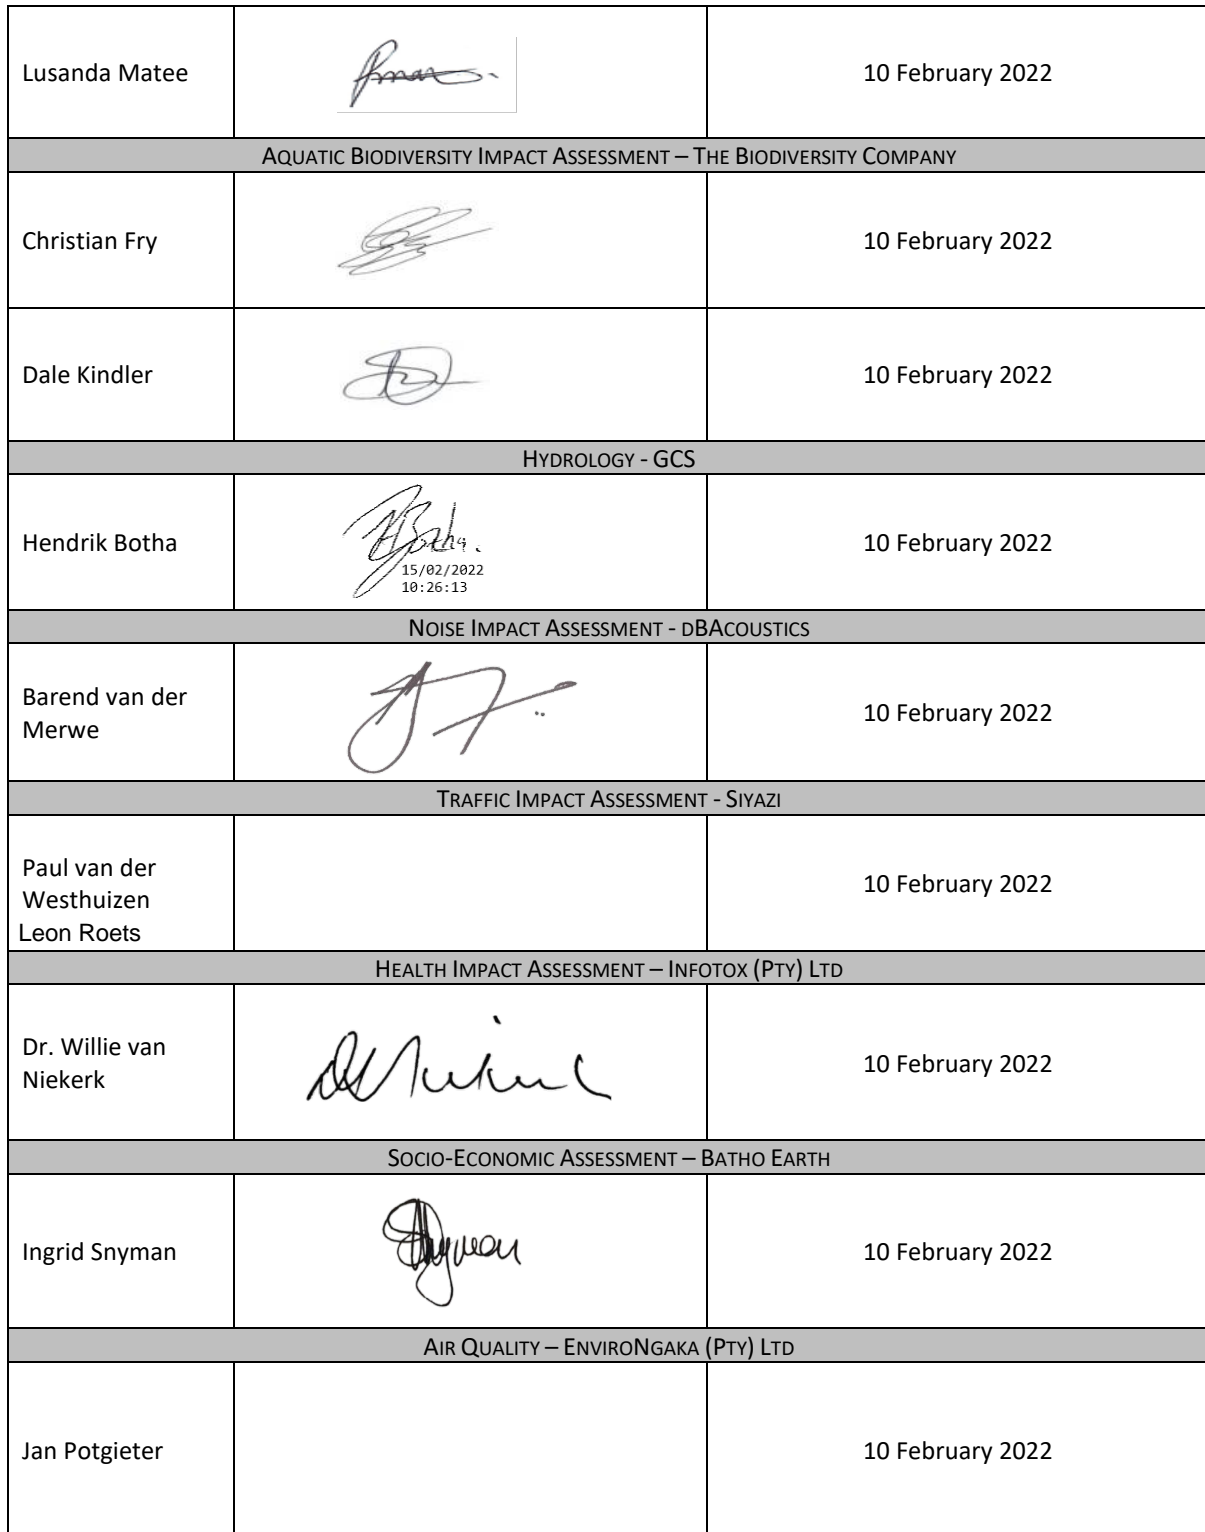 Lusanda Matee
10 February 2022
AQUATIC BIODIVERSITY IMPACT ASSESSMENT – THE BIODIVERSITY COMPANY
Christian Fry
10 February 2022
Dale Kindler
10 February 2022
HYDROLOGY - GCS
Hendrik Botha
15/02/2022
10:26:13
10 February 2022
NOISE IMPACT ASSESSMENT - DBACOUSTICS
Barend van der
Merwe
10 February 2022
TRAFFIC IMPACT ASSESSMENT - SIYAZI
Paul van der
Westhuizen
Leon Roets
10 February 2022
HEALTH IMPACT ASSESSMENT – INFOTOX (PTY) LTD
Dr. Willie van
Niekerk
10 February 2022
SOCIO-ECONOMIC ASSESSMENT – BATHO EARTH
Ingrid Snyman
10 February 2022
AIR QUALITY – ENVIRONGAKA (PTY) LTD
Jan Potgieter
10 February 2022